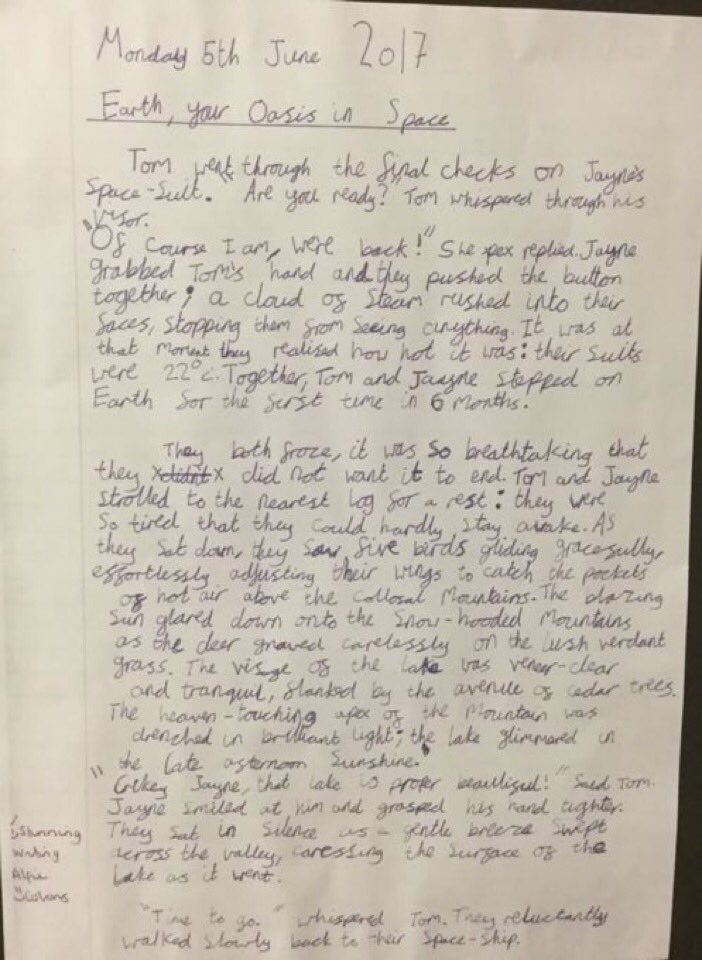 Monday 5th June 2017
Earth, your Oasis in Space
Tom went through the final checks on Jayne's
Space-Suit. "Are you ready?" Tom whispered through his
visor.
"Of course I am, were back!" She replied. Jayne
grabbed Tom's hand and they pushed the button
together; a cloud of Steam rushed into their
faces, stopping them from seeing anything. It was at
that moment they realised how hot it was: their suits
were 22°c. Together, Tom and Jaayne stepped on
Earth for the first time in 6 months.
They both froze, it was so breathtaking that
they x didn't x did not want it to end. Tom and Jayne
strolled to the nearest log for a rest: they were
so tired that they could hardly stay awake. As
they sat down, they saw five birds gliding gracefully,
effortlessly adjusting their wings to catch the pockets
of hot air above the collosal Mountains. The blazing
Sun glared down onto the Snow-hooded Mountains
as the deer gnawed carelessly on the lush verdant
grass. The visge of the lake was veneer-clear
and tranquil, flanked by the avenue of cedar trees.
The heaven-touching apex of the Mountain was
drenched in brilliant light; the lake glimmered in
the late afternoon Sunshine.
"Crikey Jayne, that lake is proper beautiful!" Said Tom.
Jayne smiled at him and grasped his hand tighter.
They sat in silence as a gentle breeze swept
across the valley, caressing the surface of the
lake as it went.
"Time to go." whispered Tom. They reluctantly
walked slowly back to their Space-Ship.
Stunning
writing
Alfie